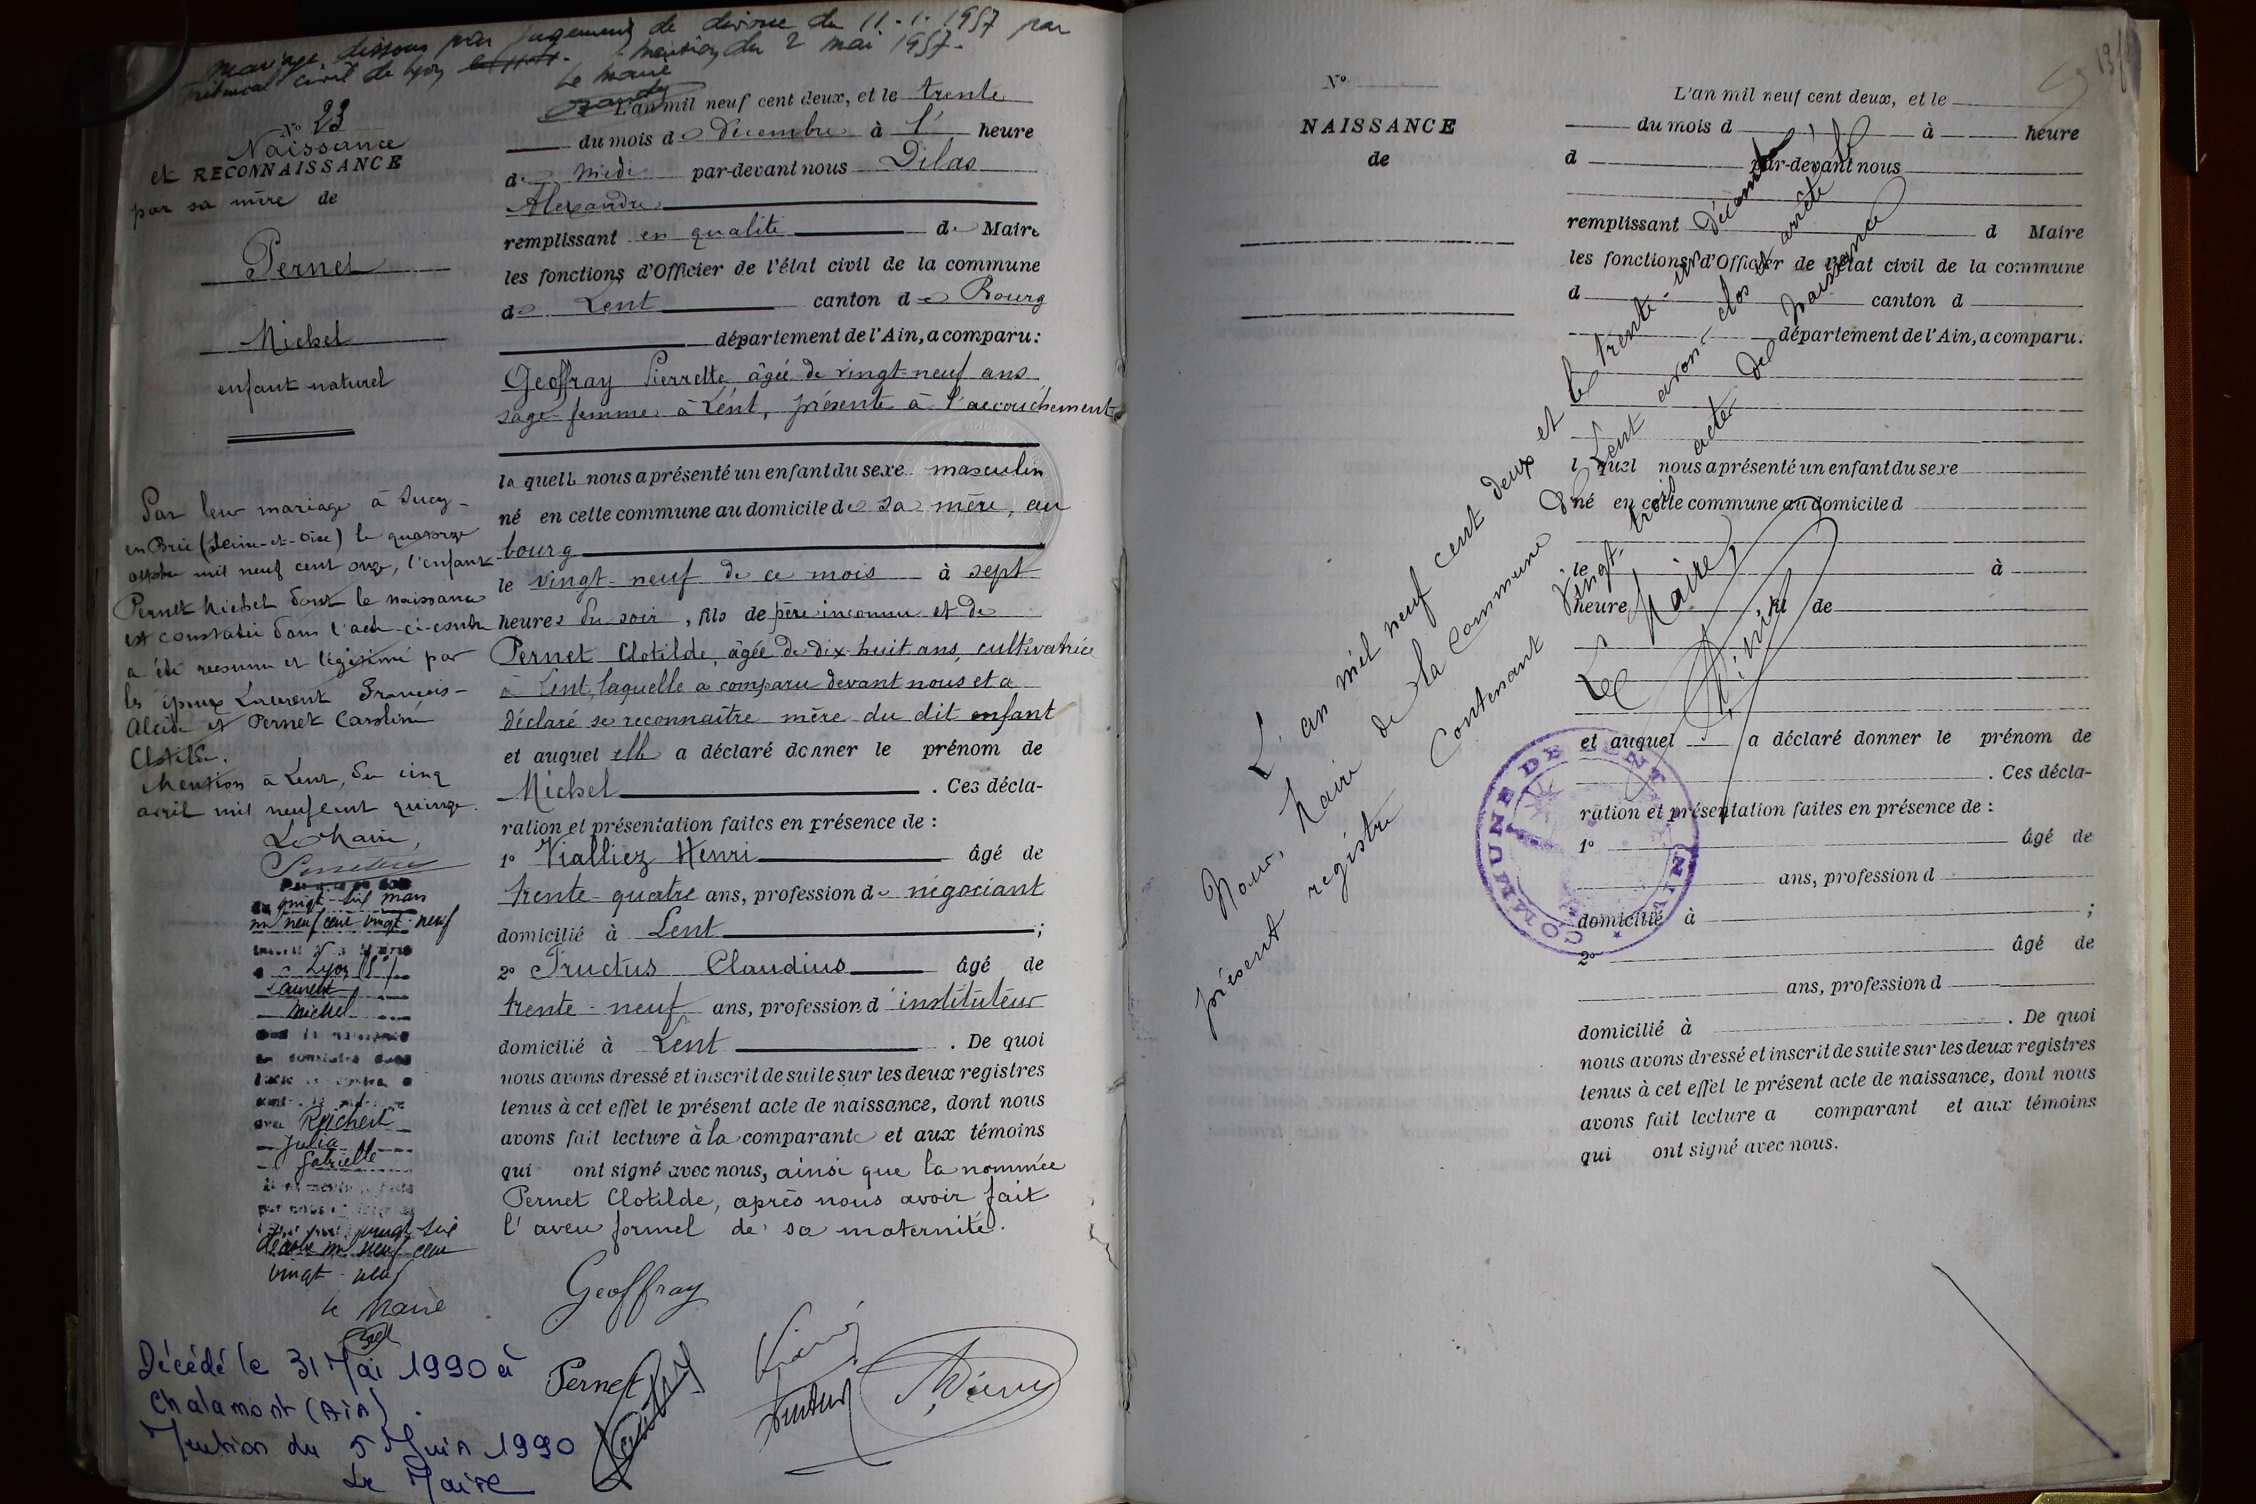 Mariage dissous par jugement de divorce du 11.1.1957 par
Tribunal civil de Lyon mention du 2 mai 1957.
Le Maire
N° 23
Naissance
et RECONNAISSANCE
par sa mère de
Pernet
Michel
enfant naturel
Par leur mariage à Sucy-
en Brie (Seine-et-Oise) le quatorze
octobre mil neuf cent onze, l'enfant
Pernet Michel dont la naissance
est constatée dans l'acte ci-contre
a été reconnu et légitimé par
les époux Laurent François-
Alcide et Pernet Caroline
Clotilde.
Mention à Lent, du cinq
avril mil neuf cent quinze.
Le Maire,
vingt-six mars
mil neuf cent vingt-neuf
à Lyon
Laurent
Michel
dont la naissance
est constatée dans
l'acte ci-contre a
avec Reichert
Julia
Gabrielle
vingt-six
mil neuf cent
vingt-neuf
le Maire
Décédé le 31 Mai 1990 à
Chalamont (Ain).
Mention du 5 Juin 1990
Le Maire
L'an mil neuf cent deux, et le trente
du mois de décembre à 1 heure
de midi par-devant nous Dilas
Alexandre
remplissant en qualité de Maire
les fonctions d'Officier de l'état civil de la commune
de Lent canton de Bourg
département de l'Ain, a comparu:
Geoffray Pierrette âgée de vingt-neuf ans
sage-femme à Lent, présente à l'accouchement
laquelle nous a présenté un enfant du sexe masculin
né en cette commune au domicile de sa mère, au
bourg
le vingt-neuf de ce mois à sept
heures du soir, fils de père inconnu et de
Pernet Clotilde, âgée de dix-huit ans, cultivatrice
à Lent, laquelle a comparu devant nous et a
déclaré se reconnaître mère du dit enfant
et auquel elle a déclaré donner le prénom de
Michel. Ces décla-
ration et présentation faites en présence de :
1° Vialliez Henri âgé de
trente-quatre ans, profession de négociant
domicilié à Lent ;
2° Fructus Claudius âgé de
trente-neuf ans, profession d'instituteur
domicilié à Lent. De quoi
nous avons dressé et inscrit de suite sur les deux registres
tenus à cet effet le présent acte de naissance, dont nous
avons fait lecture à la comparante et aux témoins
qui ont signé avec nous, ainsi que la nommée
Pernet Clotilde, après nous avoir fait
l'aveu formel de sa maternité.
Geoffray
Pernet
N°
NAISSANCE
de
L'an mil neuf cent deux, et le
du mois d à heure
d par-devant nous
remplissant d Maire
les fonctions d'Officier de l'état civil de la commune
d canton d
département de l'Ain, a comparu.
l quel nous a présenté un enfant du sexe
né en cette commune au domicile d
le à
heure , fil de
et auquel a déclaré donner le prénom de
. Ces décla-
ration et présentation faites en présence de :
1° âgé de
ans, profession d
domicilié à ;
2° âgé de
ans, profession d
domicilié à . De quoi
nous avons dressé et inscrit de suite sur les deux registres
tenus à cet effet le présent acte de naissance, dont nous
avons fait lecture a comparant et aux témoins
qui ont signé avec nous.
L'an mil neuf cent deux et le trente-un décembre
Nous, Maire de la commune de Lent avons clos et arrêté le
présent registre contenant vingt-trois actes de naissance
Le Maire,
COMMUNE DE LENT
(AIN)